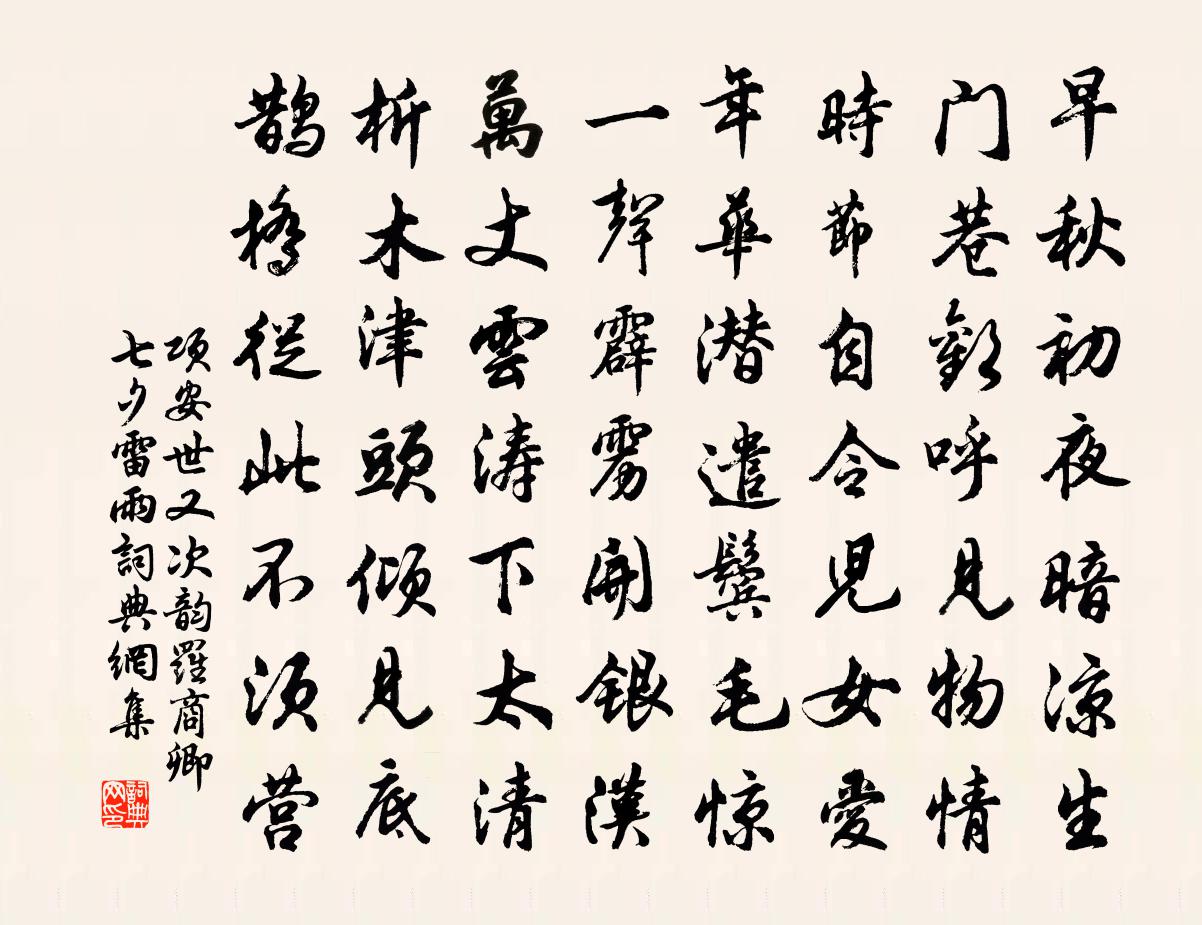 早秋初夜暗涼生
门巷歡呼見物情
時節自令兒女愛
年華潜遣鬓毛惊
一聲霹靂開銀漢
萬丈雲涛下太清
析木津頭傾見底
鹊橋從此不須营
項安世又次韵羅商卿
七夕雷雨詞典網集
詞典网印